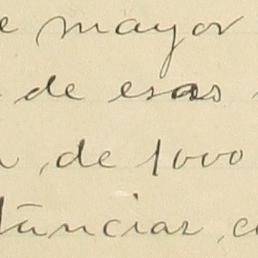 e mayor
de esas
de 1000
tunciar, c